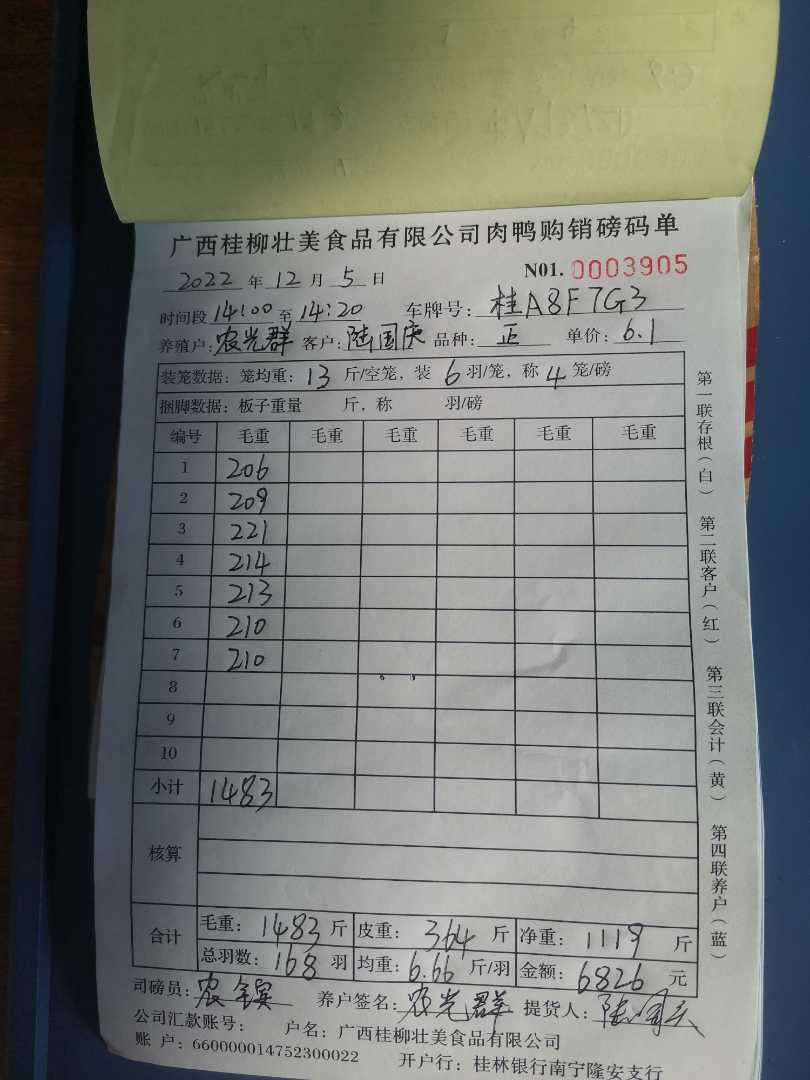 广西桂柳壮美食品有限公司肉鸭购销磅码单
2022 年 12 月 5 日 N01. 0003905
时间段 14:00 至 14:20 车牌号: 桂A8F7G3
养殖户: 农光群 客户: 陆国庆 品种: 正 单价: 6.1
装笼数据: 笼均重: 13 斤/空笼, 装 6 羽/笼, 称 4 笼/磅
捆脚数据: 板子重量 斤, 称 羽/磅
编号 毛重 毛重 毛重 毛重 毛重 毛重
1 206
2 209
3 221
4 214
5 213
6 210
7 210
8
9
10
小计 1483
核算
合计 毛重: 1483 斤 皮重: 364 斤 净重: 1119 斤
总羽数: 168 羽 均重: 6.66 斤/羽 金额: 6826 元
司磅员: 养户签名: 农光群 提货人:
公司汇款账号: 户名: 广西桂柳壮美食品有限公司
账 户: 660000014752300022 开户行: 桂林银行南宁隆安支行
第一联存根(白) 第二联客户(红) 第三联会计(黄) 第四联养户(蓝)